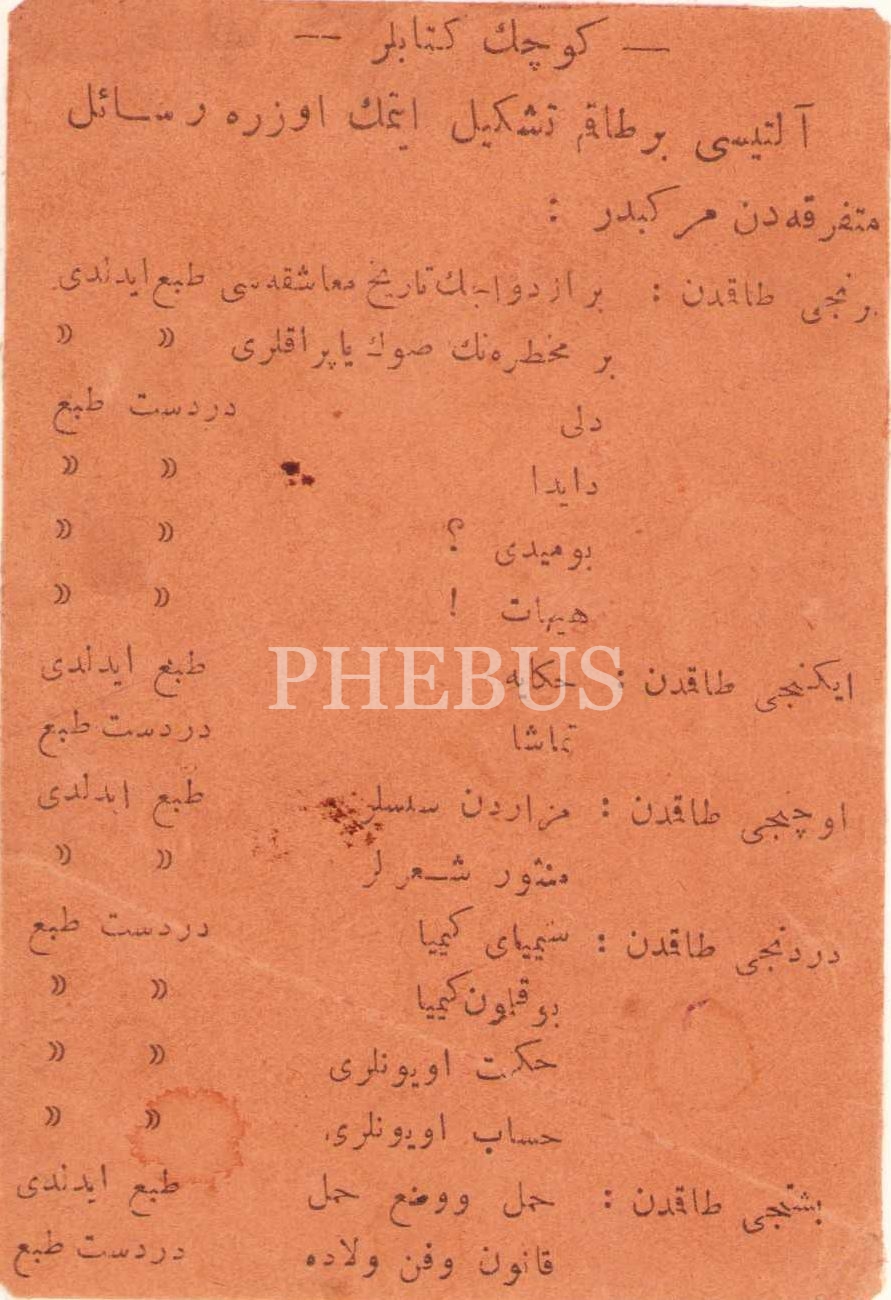 — كوچك كتابلر —
آلتیسی بر طاقم تشكیل ایتمك اوزره رسائل
متفرقه‌دن مركبدر :
برنجی طاقمدن : بر ازدواجك تاریخ معاشقه‌سی طبع ایدلدی
بر مخطره‌نك صوك یاپراقلری » »
دلی دردست طبع
دایدا » »
بومیدی ؟ » »
هیهات ! » »
ایكنجی طاقمدن : حكایه طبع ایدلدی
PHEBUS
تماشا دردست طبع
اوچنجی طاقمدن : مزاردن سسلر طبع ایدلدی
منثور شعرلر » »
دردنجی طاقمدن : سیمیای كیمیا دردست طبع
بوقلمون كیمیا » »
حكمت اویونلری » »
حساب اویونلری » »
بشنجی طاقمدن : حمل ووضع حمل طبع ایدلدی
قانون وفن ولاده دردست طبع